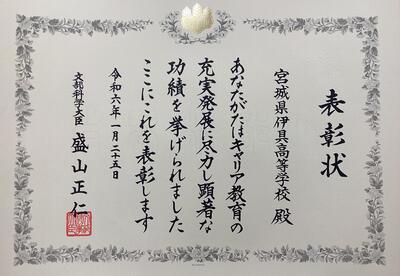 表彰状
宮城県伊具高等学校 殿
あなたがたはキャリア教育の
充実発展に尽力し顕著な
功績を挙げられました
ここにこれを表彰します
令和六年一月二十五日
文部科学大臣 盛山正仁